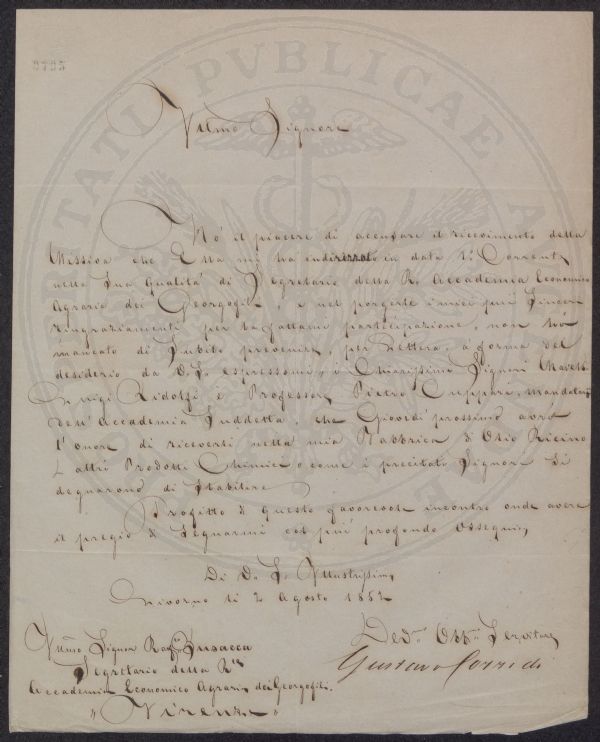 3795
PROSPERITATI PVBLICAE AVGENDAE
Illmo Signore
Hò il piacere di accusare il ricevimento della
Missiva che Ella mi ha indirizzato in data 1º Corrente
nella Sua qualità di Segretario della R. Accademia Economico
Agraria dei Georgofili, e nel porgerle i miei più Sinceri
ringraziamenti per la fattami partecipazione, non hò
mancato di Subito prevenire, per Lettera, a forma del
desiderio da V.S. espressomi, i Chiarissimi Signori March:
Luigi Ridolfi, e Professor Pietro Cuppari, mandatarj
dell'Accademia Suddetta, che Giovedì prossimo avrò
l'onore di riceverli nella mia Fabbrica di Olio Ricino
e altri Prodotti Chimici come i precitati Signori Si
degnarono di Stabilire
Profitto di questo favorevole incontro onde avere
il pregio di Segnarmi col più profondo Ossequio
Di V. S. Illustrissima
Livorno li 2 Agosto 1852
Dev.mo Obb.mo Servitore
Gustavo Corridi
Illmo Signor Raff. Busacca
Segretario della R.le
Accademia Economico Agraria dei Georgofili.
" Firenze "